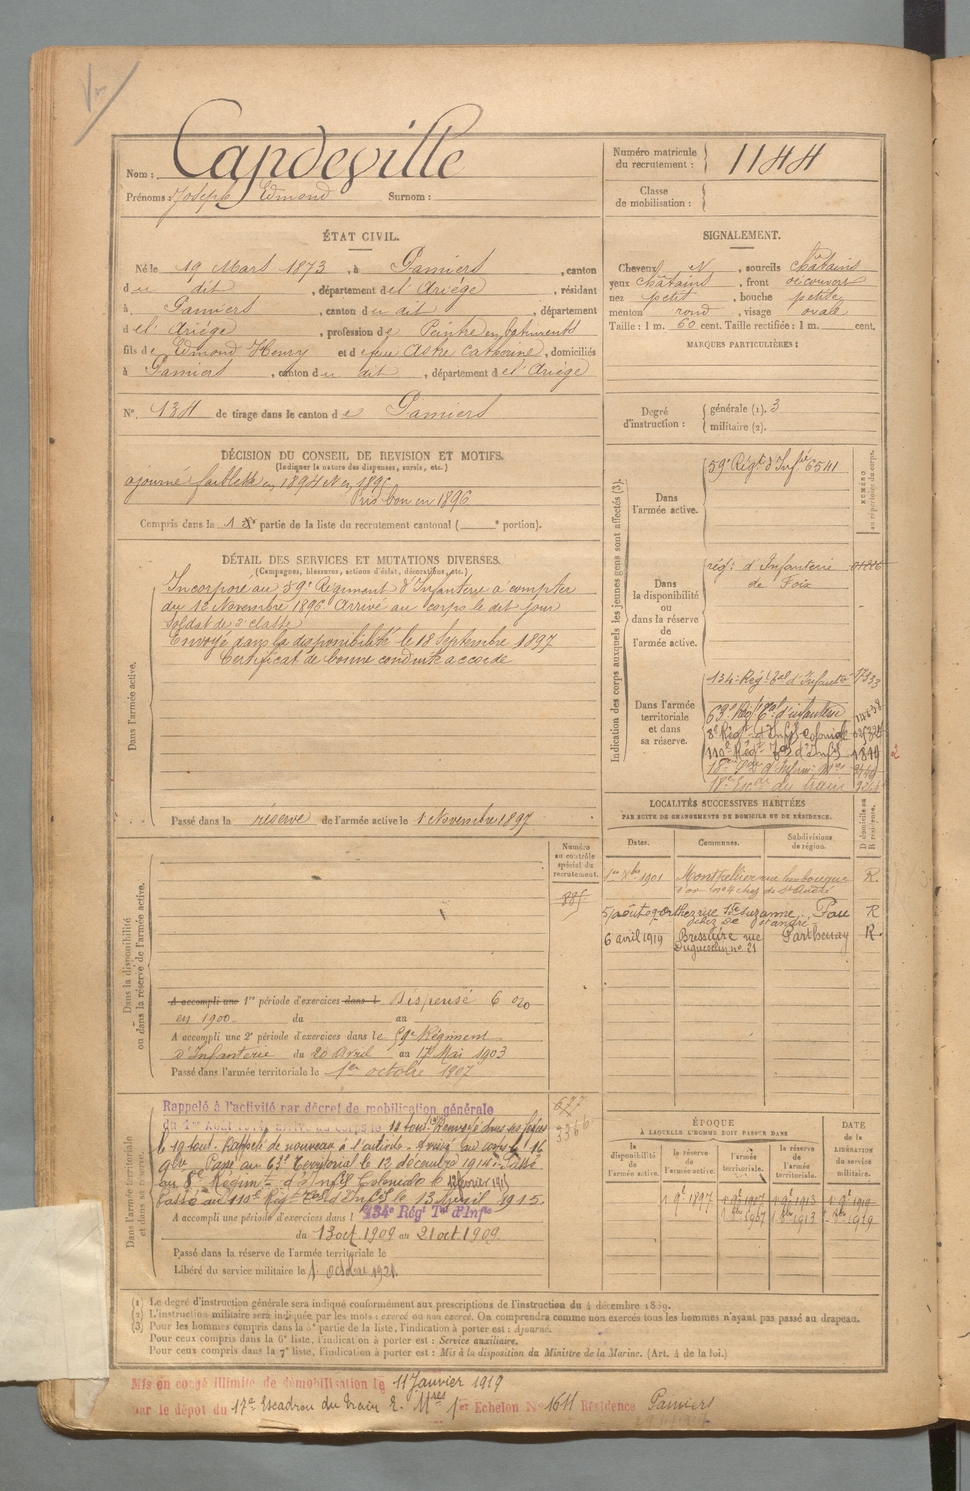 Capdeville
Nom :
Prénoms : Joseph Edmond Surnom :
Numéro matricule du recrutement : 1144
Classe de mobilisation :
ÉTAT CIVIL.
Né le 19 Mars 1873, à Pamiers, canton
du dit, département de l'Ariége, résidant
à Pamiers, canton du dit, département
de l'Ariége, profession de Peintre en bâtiments
fils de Edmond Henry et de feue Astre Catherine, domiciliés
à Pamiers, canton du dit, département de l'Ariége
N° 134 de tirage dans le canton de Pamiers
SIGNALEMENT.
Cheveux N, sourcils châtains
yeux châtains, front découvert
nez petit, bouche petite
menton rond, visage ovale
Taille : 1 m. 60 cent. Taille rectifiée : 1 m. cent.
MARQUES PARTICULIÈRES :
Degré d'instruction : générale (1). 3
militaire (2).
DÉCISION DU CONSEIL DE REVISION ET MOTIFS.
(Indiquer la nature des dispenses, sursis, etc.)
ajourné faiblesse en 1894 et en 1895
Pris bon en 1896
Compris dans la 1re partie de la liste du recrutement cantonal ( e portion).
DÉTAIL DES SERVICES ET MUTATIONS DIVERSES.
(Campagnes, blessures, actions d'éclat, décorations, etc.)
Dans l'armée active.
Incorporé au 59e Régiment d'Infanterie à compter
du 12 Novembre 1896. Arrivé au corps le dit jour
Soldat de 2e classe
Envoyé dans la disponibilité le 18 Septembre 1897
Certificat de bonne conduite accordé
Passé dans la réserve de l'armée active le 1 Novembre 1897
Indication des corps auxquels les jeunes gens sont affectés (3).
NUMÉRO au répertoire du corps.
Dans l'armée active.
59e Régt d'Infrie 6541
Dans la disponibilité ou dans la réserve de l'armée active.
régt d'Infanterie
de Foix
Dans l'armée territoriale et dans sa réserve.
134e Régt Tal d'Infanterie
63e Régt Tal d'infanterie
8e Régt d'Infie Coloniale
110e Régt Tal d'Infie 1819
18e Escon du train
LOCALITÉS SUCCESSIVES HABITÉES
PAR SUITE DE CHANGEMENTS DE DOMICILE OU DE RÉSIDENCE.
Dates. Communes. Subdivisions de région. D domicile ou R résidence.
1901 Montpellier R.
chez de St André
5 août Orthez rue Ste Suzanne Pau R
chez De St André
6 avril 1919 Bressuire rue Parthenay R.
Duguesclin no. 21
Dans la disponibilité ou dans la réserve de l'armée active.
Numéro au contrôle spécial du recrutement.
885
A accompli une 1re période d'exercices dans l Dispensé 6 0/0
en 1900 du au
A accompli une 2e période d'exercices dans le 59e Régiment
d'Infanterie du 20 Avril au 17 Mai 1903
Passé dans l'armée territoriale le 1er octobre 1907
Dans l'armée territoriale et dans sa réserve.
Rappelé à l'activité par décret de mobilisation générale
du 1er Août 1914. Arrivé au corps le 11 août. Renvoyé dans ses foyers
le 19 août. Rappelé de nouveau à l'activité. Arrivé au corps le 16
9bre. Passé au 63e Territorial le 12 décembre 1914. Passé
au 8e Régiment d'Infie Coloniale le
Passé au 110e Régt Tal d'Infie le 13 Avril 1915.
A accompli une période d'exercices dans l 134e Régt Tal d'Infie
du 13 oct. 1909 au 21 oct 1909
Passé dans la réserve de l'armée territoriale le
Libéré du service militaire le 1 octobre 1921.
ÉPOQUE
À LAQUELLE L'HOMME DOIT PASSER DANS
la disponibilité de l'armée active. la réserve de l'armée active. l'armée territoriale. la réserve de l'armée territoriale. DATE de la LIBÉRATION du service militaire.
1 9bre 1897 1 9bre 1907 1 9bre 1913 1 9bre 1919
1 8bre 1907 1 8bre 1913 1 8bre 1919
(1) Le degré d'instruction générale sera indiqué conformément aux prescriptions de l'instruction du 4 décembre 1889.
(2) L'instruction militaire sera indiquée par les mots : exercé ou non exercé. On comprendra comme non exercés tous les hommes n'ayant pas passé au drapeau.
(3) Pour les hommes compris dans la 5e partie de la liste, l'indication à porter est : Ajourné.
Pour ceux compris dans la 6e liste, l'indication à porter est : Service auxiliaire.
Pour ceux compris dans la 7e liste, l'indication à porter est : Mis à la disposition du Ministre de la Marine. (Art. 4 de la loi.)
Mis en congé illimité de démobilisation le 11 Janvier 1919
par le dépôt du 17e Escadron du train 1er Echelon No 1611 Résidence Pamiers